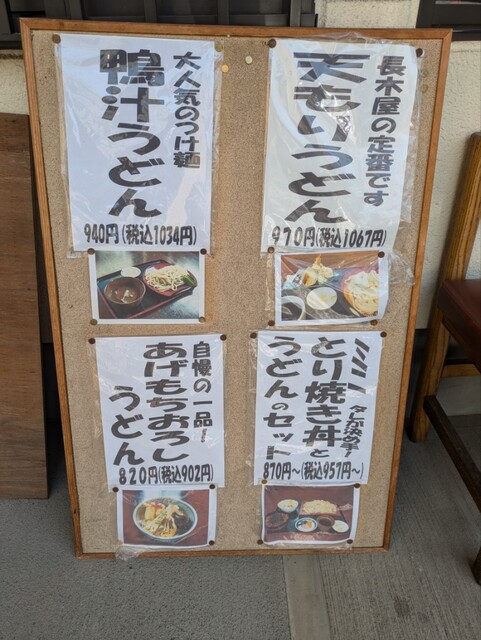 大人気のつけ麺
鴨汁うどん
940円(税込1034円)
長木屋の定番です
天もりうどん
970円(税込1067円)
自慢の一品!
あげもちおろし
うどん
820円(税込902円)
タレが決め手!
ミニとり焼き丼と
うどんのセット
870円〜(税込957円〜)